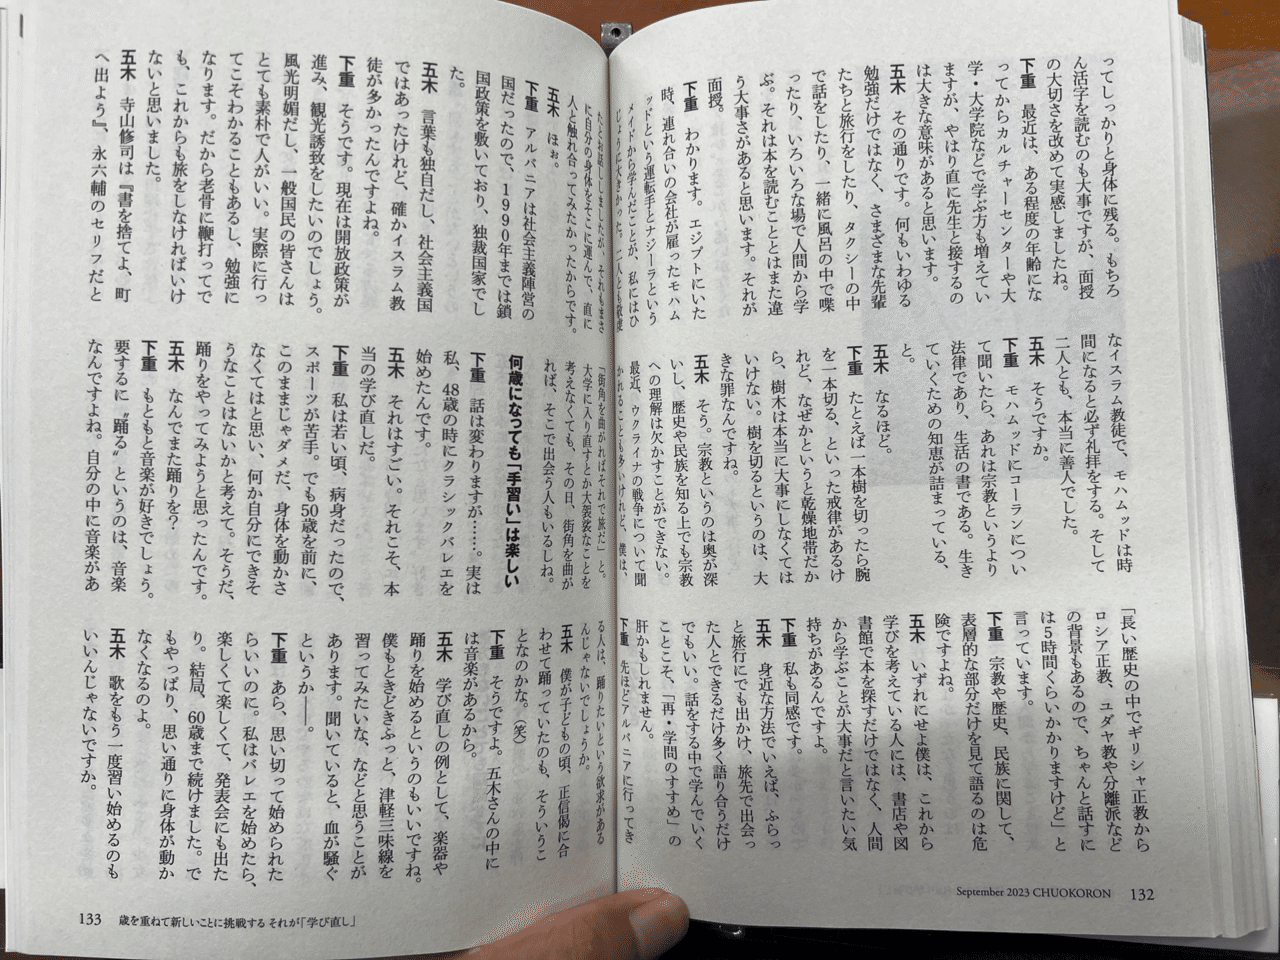 ってしっかりと身体に残る。もちろ
ん活字を読むのも大事ですが、面授
の大切さを改めて実感しましたね。
下重　最近は、ある程度の年齢にな
ってからカルチャーセンターや大
学・大学院などで学ぶ方も増えてい
ますが、やはり直に先生と接するの
は大きな意味があると思います。
五木　その通りです。何もいわゆる
勉強だけではなく、さまざまな先輩
たちと旅行をしたり、タクシーの中
で話をしたり、一緒に風呂の中で喋
ったり、いろいろな場で人間から学
ぶ。それは本を読むこととはまた違
う大事さがあると思います。それが
面授。
下重　わかります。エジプトにいた
時、連れ合いの会社が雇ったモハム
ッドという運転手とナジーラという
メイドから学んだことが、私にはひ
じょうに大きかった。二人とも敬虔
なイスラム教徒で、モハムッドは時
間になると必ず礼拝をする。そして
二人とも、本当に善人でした。
五木　そうですか。
下重　モハムッドにコーランについ
て聞いたら、あれは宗教というより
法律であり、生活の書である。生き
ていくための知恵が詰まっている、
と。
五木　なるほど。
下重　たとえば一本樹を切ったら腕
を一本切る、といった戒律があるけ
れど、なぜかというと乾燥地帯だか
ら、樹木は本当に大事にしなくては
いけない。樹を切るというのは、大
きな罪なんですね。
五木　そう。宗教というのは奥が深
いし、歴史や民族を知る上でも宗教
への理解は欠かすことができない。
最近、ウクライナの戦争について聞
かれることも多いけれど、僕は、
「長い歴史の中でギリシャ正教から
ロシア正教、ユダヤ教や分離派など
の背景もあるので、ちゃんと話すに
は5時間くらいかかりますけど」と
言っています。
下重　宗教や歴史、民族に関して、
表層的な部分だけを見て語るのは危
険ですよね。
五木　いずれにせよ僕は、これから
学びを考えている人には、書店や図
書館で本を探すだけではなく、人間
から学ぶことが大事だと言いたい気
持ちがあるんですよ。
下重　私も同感です。
五木　身近な方法でいえば、ふらっ
と旅行にでも出かけ、旅先で出会っ
た人とできるだけ多く語り合うだけ
でもいい。話をする中で学んでいく
ことこそ、「再・学問のすすめ」の
肝かもしれません。
下重　先ほどアルバニアに行ってき
September 2023 CHUOKORON　132
たとお話ししましたが、それもまさ
に自分の身体をそこに運んで、直に
人と触れ合ってみたかったからです。
五木　ほぉ。
下重　アルバニアは社会主義陣営の
国だったので、1990年までは鎖
国政策を敷いており、独裁国家でし
た。
五木　言葉も独自だし、社会主義国
ではあったけれど、確かイスラム教
徒が多かったんですよね。
下重　そうです。現在は開放政策が
進み、観光誘致をしたいのでしょう。
風光明媚だし、一般国民の皆さんは
とても素朴で人がいい。実際に行っ
てこそわかることもあるし、勉強に
なります。だから老骨に鞭打ってで
も、これからも旅をしなければいけ
ないと思いました。
五木　寺山修司は『書を捨てよ、町
へ出よう』、永六輔のセリフだと
「街角を曲がればそれで旅だ」と。
大学に入り直すとか大袈裟なことを
考えなくても、その日、街角を曲が
れば、そこで出会う人もいるしね。
何歳になっても「手習い」は楽しい
下重　話は変わりますが……。実は
私、48歳の時にクラシックバレエを
始めたんです。
五木　それはすごい。それこそ、本
当の学び直しだ。
下重　私は若い頃、病身だったので、
スポーツが苦手。でも50歳を前に、
このままじゃダメだ、身体を動かさ
なくてはと思い、何か自分にできそ
うなことはないかと考えて。そうだ、
踊りをやってみようと思ったんです。
五木　なんでまた踊りを？
下重　もともと音楽が好きでしょう。
要するに〝踊る〟というのは、音楽
なんですよね。自分の中に音楽があ
る人は、踊りたいという欲求がある
んじゃないでしょうか。
五木　僕が子どもの頃、正信偈に合
わせて踊っていたのも、そういうこ
となのかな。（笑）
下重　そうですよ。五木さんの中に
は音楽があるから。
五木　学び直しの例として、楽器や
踊りを始めるというのもいいですね。
僕もときどきふっと、津軽三味線を
習ってみたいな、などと思うことが
あります。聞いていると、血が騒ぐ
というか――。
下重　あら、思い切って始められた
らいいのに。私はバレエを始めたら、
楽しくて楽しくて、発表会にも出た
り。結局、60歳まで続けました。で
もやっぱり、思い通りに身体が動か
なくなるのよ。
五木　歌をもう一度習い始めるのも
いいんじゃないですか。
133　歳を重ねて新しいことに挑戦する それが「学び直し」